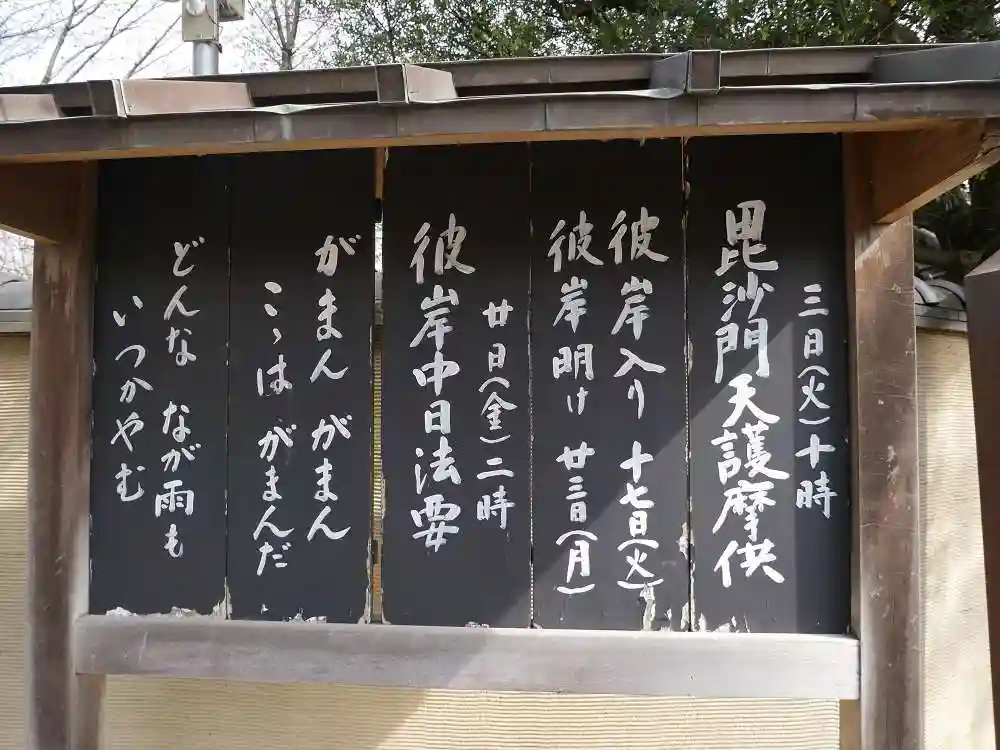 三日(火)十時
毘沙門天護摩供
彼岸入り 十七日(火)
彼岸明け 廿三日(月)
廿日(金)二時
彼岸中日法要
がまん がまん
こゝは がまんだ
どんな なが雨も
いつかやむ